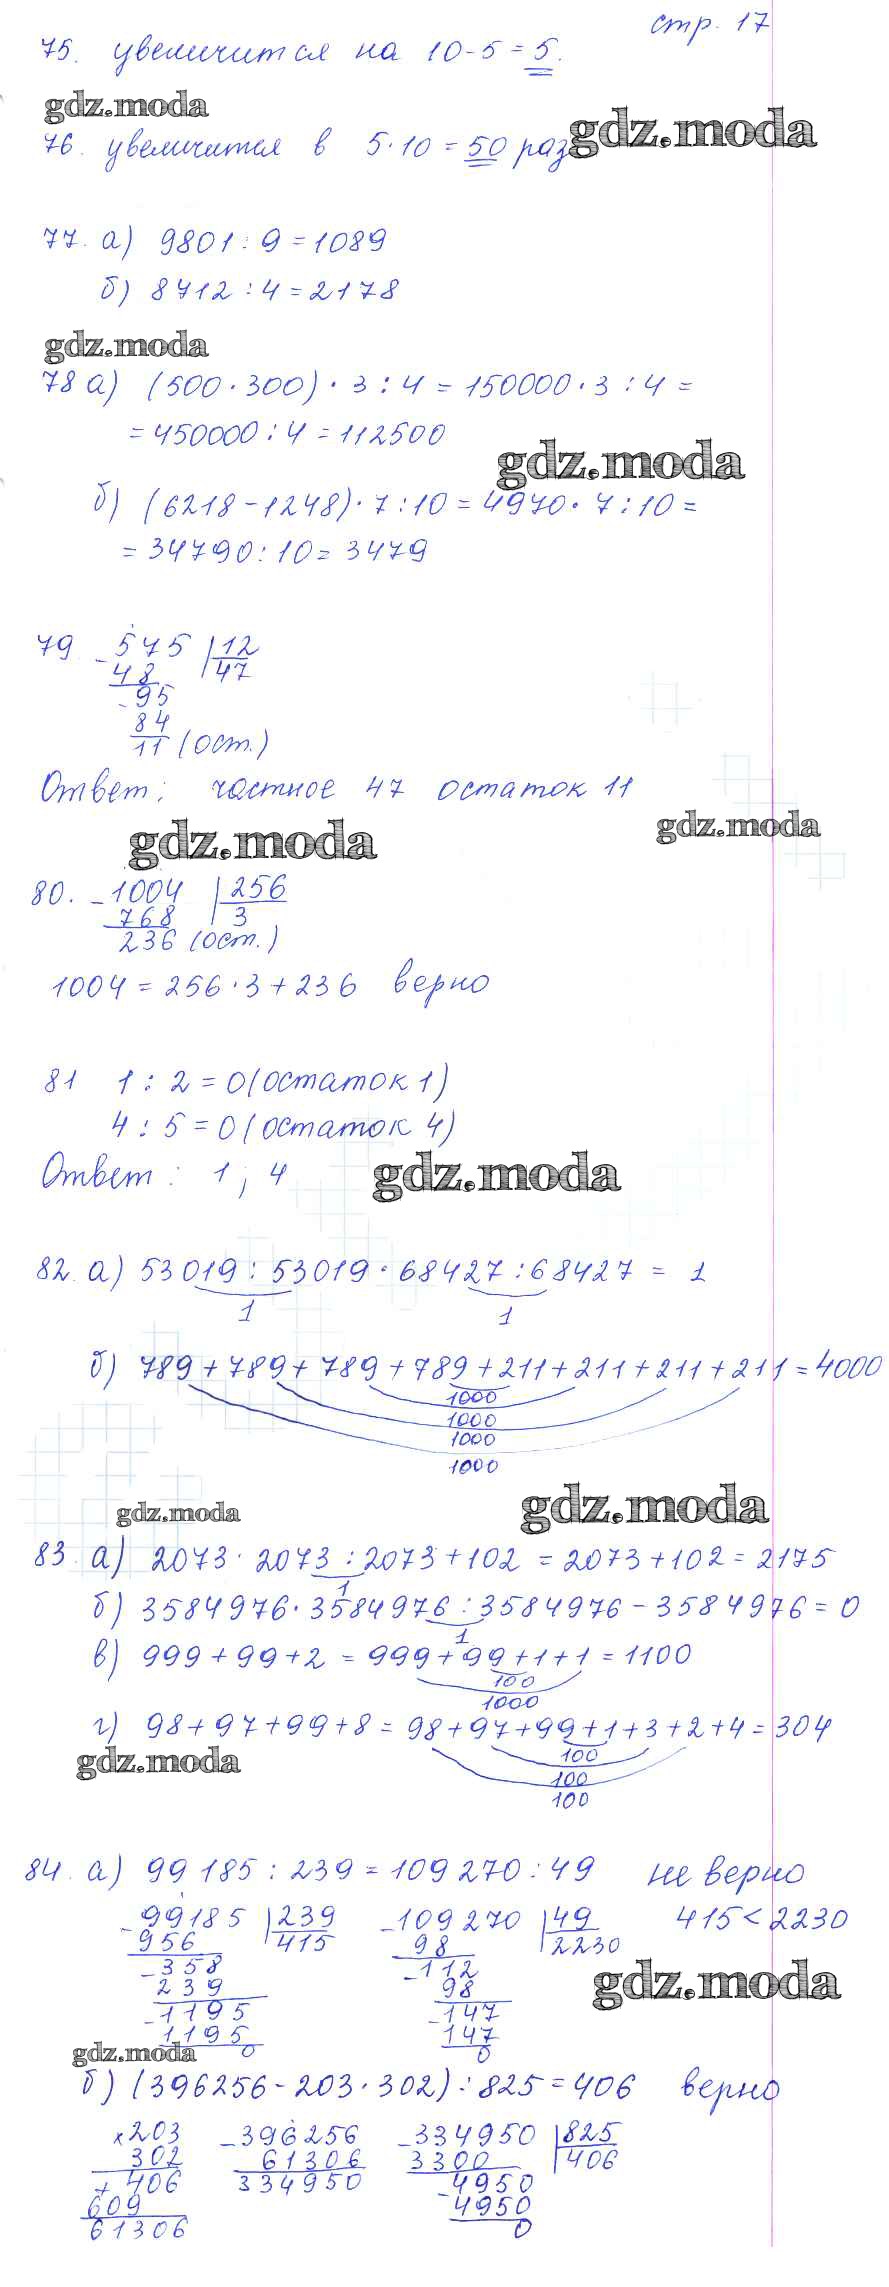 стр. 17
75. увеличится на 10-5=5.
gdz.moda
gdz.moda
76. увеличится в 5·10=50 раз
77. а) 9801:9=1089
б) 8712:4=2178
gdz.moda
78 а) (500·300)·3:4=150000·3:4=
=450000:4=112500
gdz.moda
б) (6218-1248)·7:10=4970·7:10=
=34790:10=3479
79 -575 |12
48 47
-95
84
11 (ост.)
Ответ: частное 47 остаток 11
gdz.moda
gdz.moda
80. -1004 |256
768 3
236 (ост.)
1004=256·3+236 верно
81 1:2=0(остаток 1)
4:5=0(остаток 4)
Ответ: 1; 4
gdz.moda
82. а) 53019:53019·68427:68427=1
1 1
б) 789+789+789+789+211+211+211+211=4000
1000
1000
1000
1000
gdz.moda
gdz.moda
83 а) 2073·2073:2073+102=2073+102=2175
1
б) 3584976·3584976:3584976-3584976=0
1
в) 999+99+2=999+99+1+1=1100
100
1000
г) 98+97+99+8=98+97+99+1+3+2+4=304
gdz.moda
100
100
100
84. а) 99185:239=109270:49 не верно
-99185 |239 -109270 |49 415<2230
956 415 98 2230
-358 -112
239 98
-1195 -147
1195 147
0 0
gdz.moda
gdz.moda
б) (396256-203·302):825=406 верно
×203 -396256 -334950 |825
302 61306 3300 406
+406 334950 -4950
609 4950
61306 0